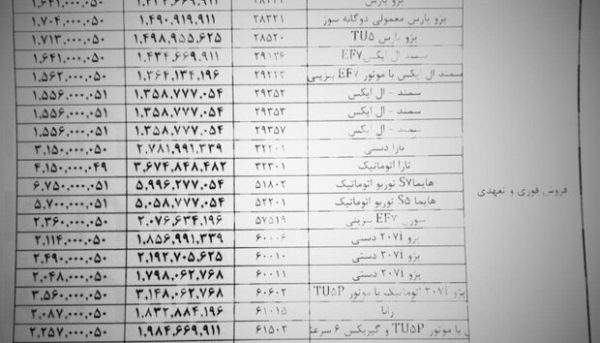 پژو پارس ۱.۴۹۰.۹۱۹.۹۱۱
پژو پارس معمولی دوگانه سوز ۲۸۲۲۱ ۱.۴۹۰.۹۱۹.۹۱۱ ۱.۷۰۴.۰۰۰.۰۵۰
پژو پارس TU۵ ۲۸۵۲۰ ۱.۴۹۸.۹۵۵.۶۲۵ ۱.۷۱۳.۰۰۰.۰۵۰
سمند ال ایکس EF۷ ۲۹۱۳۶ ۱.۴۳۴.۶۶۹.۹۱۱ ۱.۶۴۱.۰۰۰.۰۵۰
سمند ال ایکس با موتور EF۷ بنزینی ۲۹۲۱۳ ۱.۳۶۴.۱۳۴.۱۹۶ ۱.۵۶۲.۰۰۰.۰۵۰
سمند - ال ایکس ۲۹۲۵۲ ۱.۳۵۸.۷۷۷.۰۵۴ ۱.۵۵۶.۰۰۰.۰۵۱
سمند - ال ایکس ۲۹۳۵۳ ۱.۳۵۸.۷۷۷.۰۵۴ ۱.۵۵۶.۰۰۰.۰۵۱
سمند - ال ایکس ۲۹۳۵۷ ۱.۳۵۸.۷۷۷.۰۵۴ ۱.۵۵۶.۰۰۰.۰۵۱
تارا دستی ۳۲۲۰۱ ۲.۷۸۱.۹۹۱.۳۳۹ ۳.۱۵۰.۰۰۰.۰۵۰
تارا اتوماتیک ۳۲۳۰۱ ۳.۶۷۴.۸۴۸.۴۸۲ ۴.۱۵۰.۰۰۰.۰۴۹
فروش فوری و تعهدی
هایما S۷ توربو اتوماتیک ۵۱۸۰۲ ۵.۹۹۶.۲۷۷.۰۵۴ ۶.۷۵۰.۰۰۰.۰۵۱
هایما S۵ توربو اتوماتیک ۵۲۲۰۱ ۵.۰۵۸.۷۷۷.۰۵۴ ۵.۷۰۰.۰۰۰.۰۵۱
سورن EF۷ بنزینی ۵۷۵۱۹ ۲.۰۷۶.۶۳۴.۱۹۶ ۲.۳۶۰.۰۰۰.۰۵۰
پژو ۲۰۷i دستی ۶۰۰۰۶ ۱.۸۵۶.۹۹۱.۳۳۹ ۲.۱۱۴.۰۰۰.۰۵۰
پژو ۲۰۷i دستی ۶۰۰۱۰ ۲.۱۹۲.۷۰۵.۶۲۵ ۲.۴۹۰.۰۰۰.۰۵۰
پژو ۲۰۷i دستی ۶۰۰۱۱ ۱.۷۹۸.۰۶۲.۷۶۸ ۲.۰۴۸.۰۰۰.۰۵۰
پژو ۲۰۷i اتوماتیک با موتور TU۵P ۶۰۶۰۲ ۳.۱۴۸.۰۶۲.۷۶۸ ۳.۵۶۰.۰۰۰.۰۵۰
رانا ۶۱۰۱۵ ۱.۸۳۲.۸۸۴.۱۹۶ ۲.۰۸۷.۰۰۰.۰۵۰
با موتور TU۵P و گیربکس ۶ سرعته ۶۱۵۰۲ ۱.۹۸۴.۶۶۹.۹۱۱ ۲.۲۵۷.۰۰۰.۰۵۰